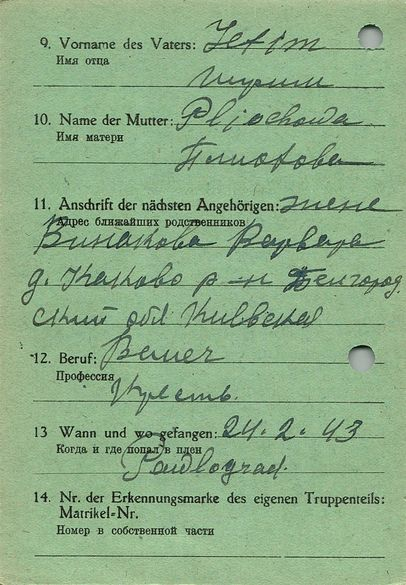 9. Vorname des Vaters: Jefim
Имя отца
10. Name der Mutter: Pljochowa
Имя матери
11. Anschrift der nächsten Angehörigen: жене
Адрес ближайших родственников
Варвара
д. р-н
ский обл
12. Beruf: Bauer
Профессия
Крестъ.
13 Wann und wo gefangen: 24.2.43
Когда и где попал в плен
Pawlograd.
14. Nr. der Erkennungsmarke des eigenen Truppenteils:
Matrikel-Nr.
Номер в собственной части